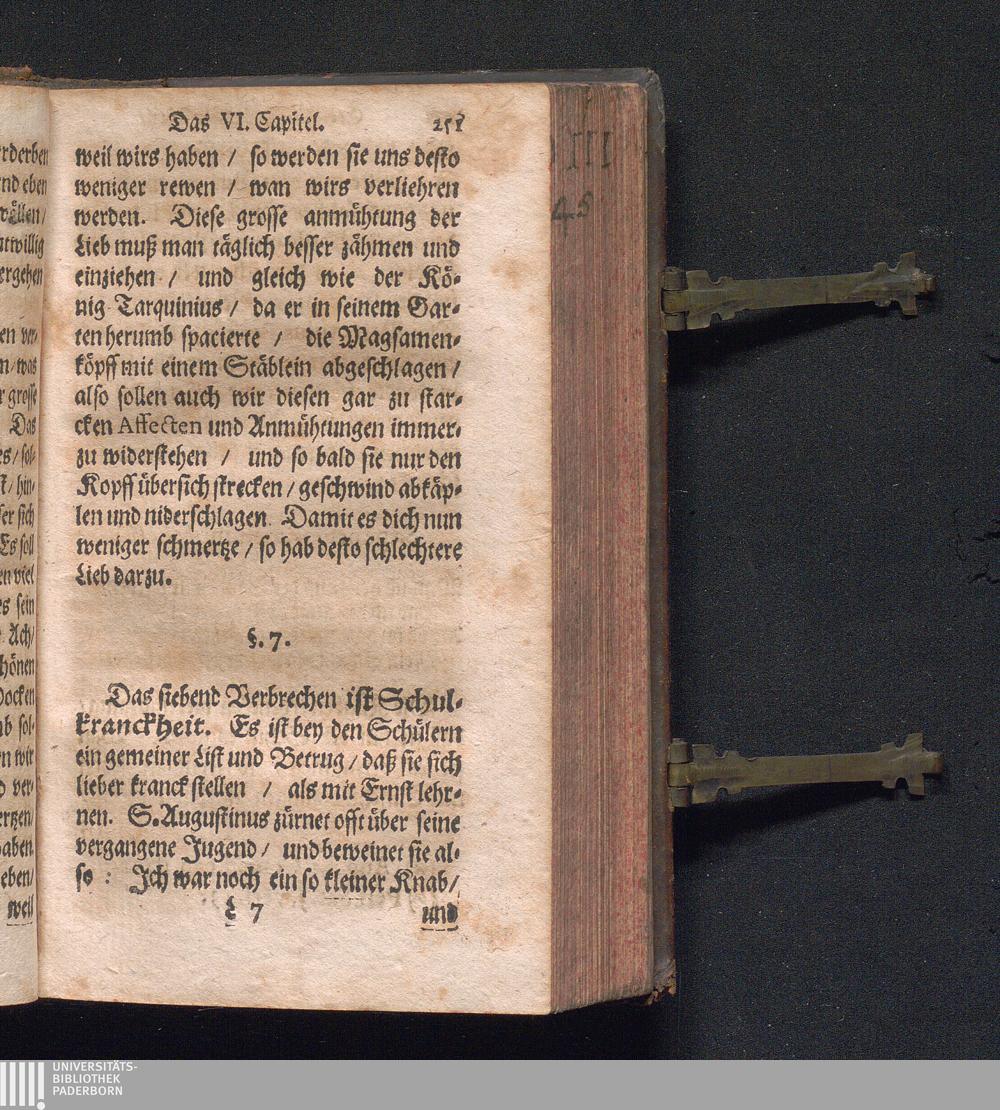 Das VI. Capitel. 251
weil wirs haben / so werden sie uns desto
weniger rewen / wan wirs verliehren
werden. Diese grosse anmühtung der
Lieb muß man täglich besser zähmen und
einziehen / und gleich wie der Kö-
nig Tarquinius / da er in seinem Gar-
ten herumb spacierte / die Magsamen-
köpff mit einem Stäblein abgeschlagen /
also sollen auch wir diesen gar zu star-
cken Affecten und Anmühtungen immer-
zu widerstehen / und so bald sie nur den
Kopff übersich strecken / geschwind abkäp-
len und niderschlagen. Damit es dich nun
weniger schmertze / so hab desto schlechtere
Lieb darzu.
§. 7.
Das siebend Verbrechen ist Schul-
kranckheit. Es ist bey den Schülern
ein gemeiner List und Betrug / daß sie sich
lieber kranck stellen / als mit Ernst lehr-
nen. S. Augustinus zürnet offt über seine
vergangene Jugend / und beweinet sie al-
so : Ich war noch ein so kleiner Knab /
L 7 und
rderben
nd eben
wällen /
utwillig
ergehen
en ver-
n / was
r grosse
Das
es / sol-
st / hin-
ser sich
Es soll
en viel
s sein
Ach /
hönen
Docken
b sol-
n wir
d ver-
ertzen /
aben
eben /
weil
III
45
UNIVERSITÄTS-
BIBLIOTHEK
PADERBORN